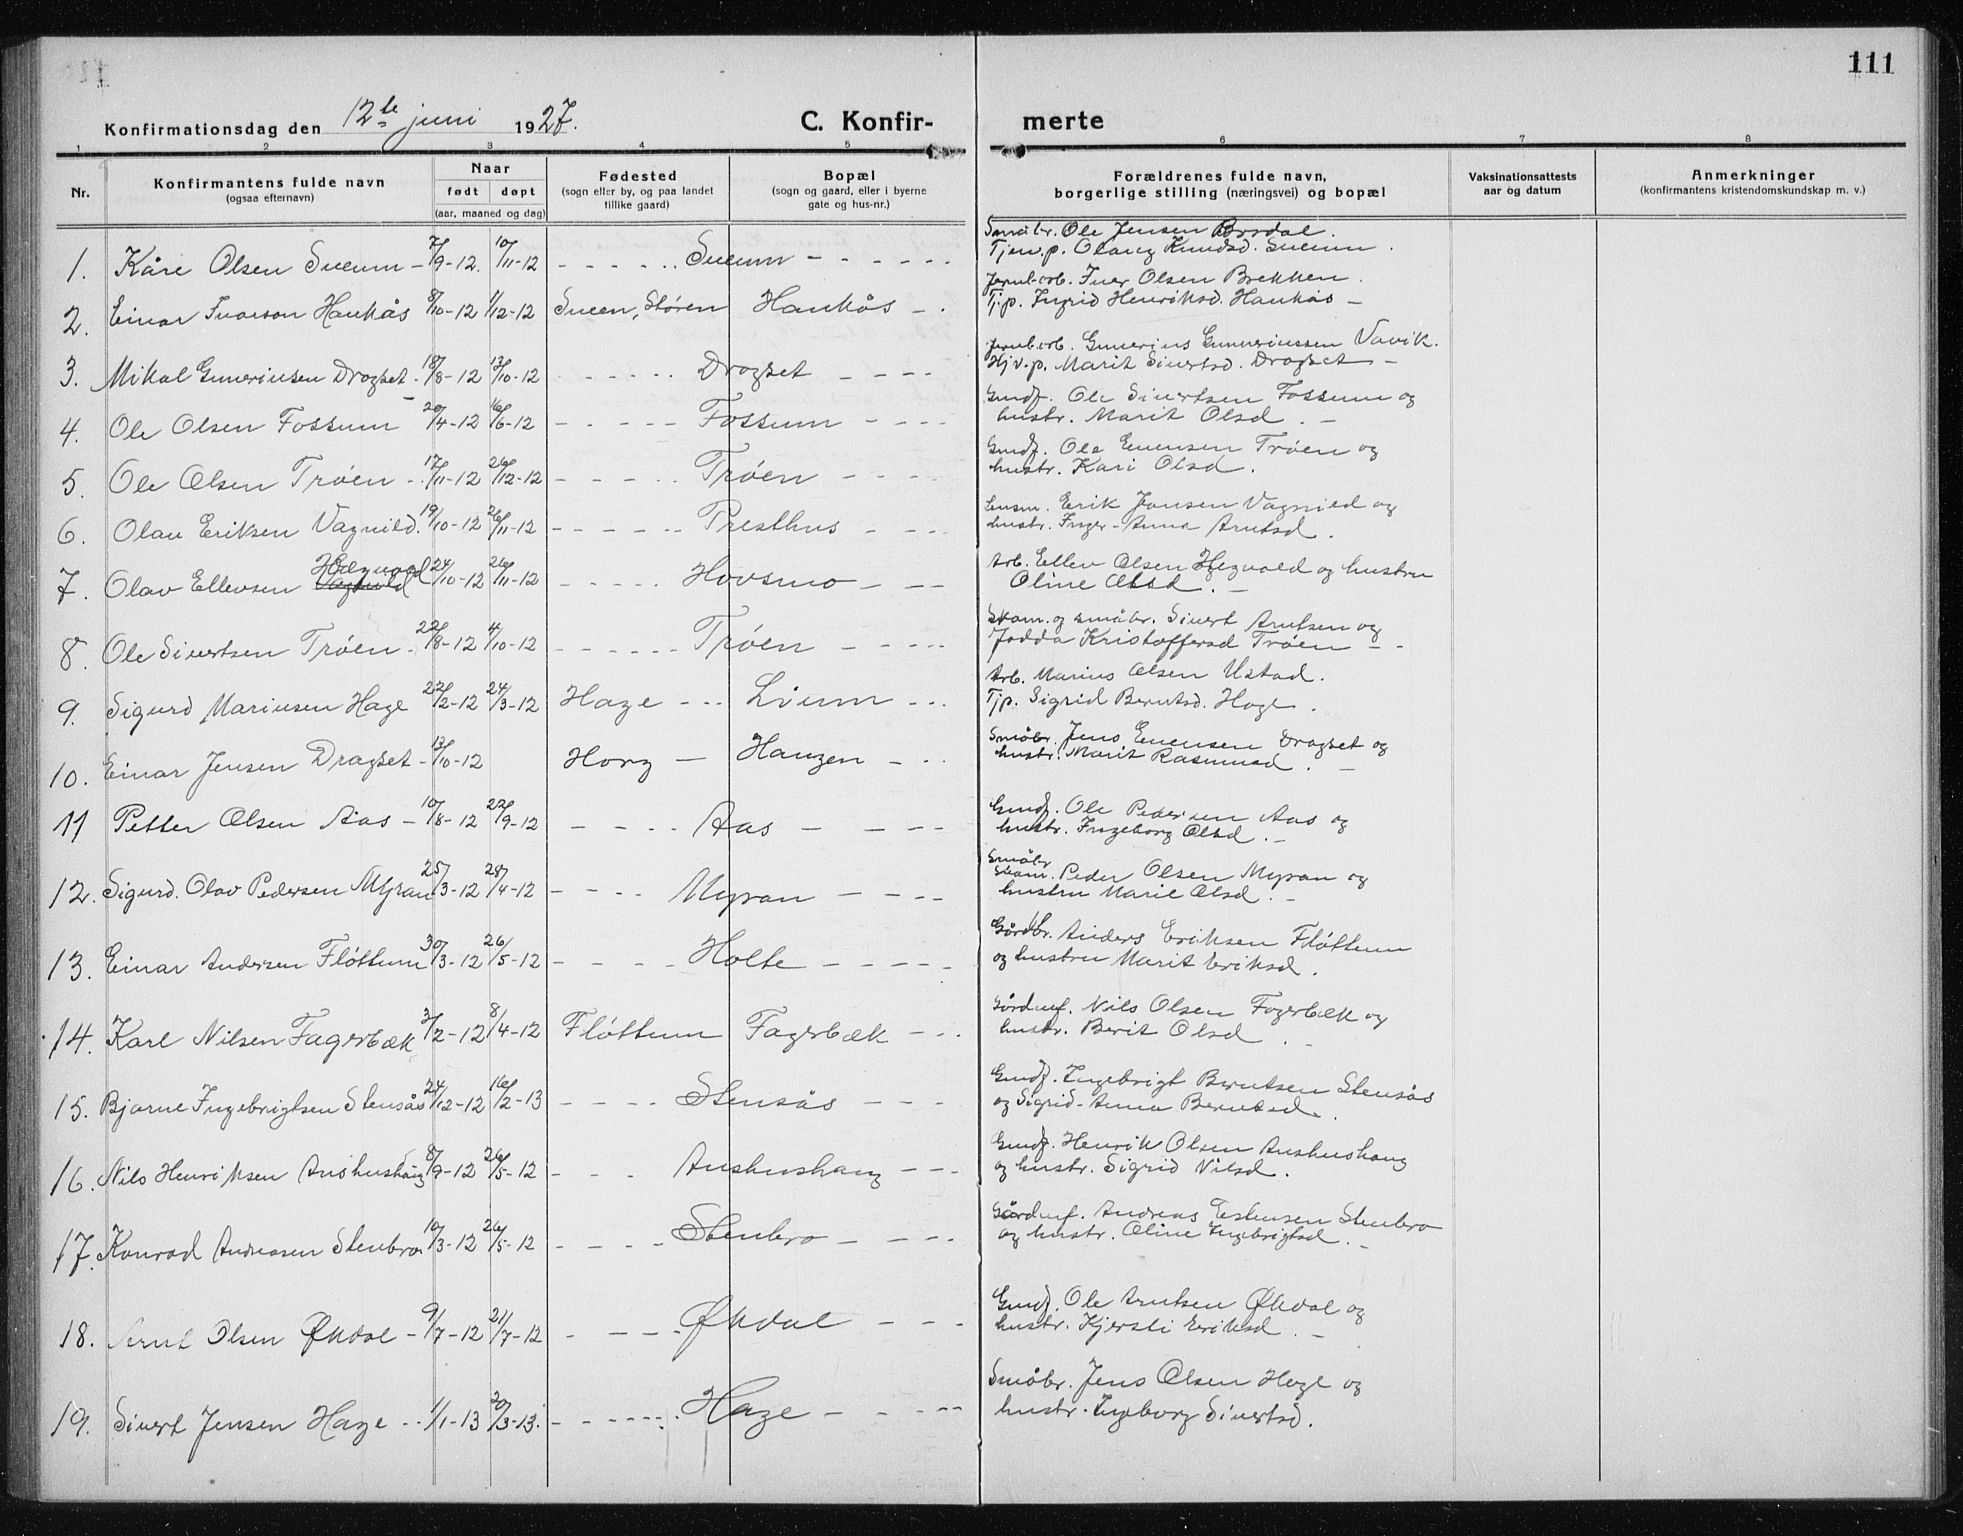 111
Konfirmationsdag den 12te juni 1927. C. Konfirmerte
1 2 3 4 5 6 7 8
Nr. Konfirmantens fulde navn (ogsaa efternavn) Naar født døpt (aar, maaned og dag) Fødested (sogn eller by, og paa landet tillike gaard) Bopæl (sogn og gaard, eller i byerne gate og hus-nr.) Forældrenes fulde navn, borgerlige stilling (næringsvei) og bopæl Vaksinationsattests aar og datum Anmerkninger (konfirmantens kristendomskundskap m. v.)
1. Kåre Olsen Sveum 7/9-12. 10/11-12 Sveum Småbr. Ole Jensen
Tjen.p. Knudsd. Sveum.
2. Einar Ivarson Haukås 8/10-12 1/12-12 Sveen, Støren Haukås Jernb.arb. Iver Olsen Brekken.
Tj.p. Ingrid Henriksd. Haukås
3. Mikal Guneriusen Drogset 18/8-12 13/10-12 Drogset Jernb.arb. Gunerius Gunneriussen Vavik.
Hjv.p. Marit Sivertsd. Drogset
4. Ole Olsen Fossum 20/4-12 16/6-12 Fossum Grndf. Ole Sivertsen Fossum og
hustr. Marit Olsd.
5. Ole Olsen Trøen 17/11-12 26/12-12 Trøen Grndf. Ole Evensen Trøen og
hustr. Kari Olsd.
6. Olav Eriksen Vagnild. 19/10-12 26/11-12 Presthus Lensm. Erik Jonsen Vagnild og
hustr. Inger-Anna Arntsd.
7. Olav Ellevsen Hægvold 24/10-12 26/11-12 Hovsmo Arb. Ellev Olsen Hegvold og hustru
Oline Olsd.
8. Ole Sivertsen Trøen 22/8-12 4/10-12 Trøen Skom. og småbr. Sivert Arntsen og
Jodda Kristoffersd Trøen
9. Sigurd Mariusen Hage 22/2-12 24/3-12 Hage Lium Arb. Marius Olsen Ustad.
Tjp. Sigrid Berntsd. Hage.
10. Einar Jensen Dragset 12/10-12 Horg Haugen Småbr. Jens Evensen Drogset og
hustr. Marit Rasmusd.
11 Petter Olsen Aas 10/8-12 22/9-12 Aas Grndf. Ole Pedersen Aas og
hustr. Ingeborg Olsd.
12. Sigurd. Olav Pedersen Myran 25/3-12 28/4-12 Myran Småbr. Peder Olsen Myran og
hustru Marie Olsd.
13. Einar Andersen Fløttum 30/3-12 26/5-12 Holte Gårdbr. Anders Eriksen Fløttum
og hustru Marit Eriksd.
14. Karl Nilsen Fagerbæk 3/2-12 8/4-12 Fløttum Fagerbæk Nils Olsen Fagerbæk og
hustr. Berit Olsd.
15. Bjarne Ingebrigtsen Stensås 24/12-12 16/2-13 Stensås Grndf. Ingebrigt Berntsen Stensås
og Sigrid-Anna Berntsd.
16. Nils Henriksen Aushushaug 8/9-12 26/5-12 Aushushaug Grndf. Henrik Olsen Aushushaug
og hustr. Sigrid Nilsd.
17. Konrad Andreasen Stenbro 10/3-12 26/5-12 Stenbro Andreas Estensen Stenbro
og hustr. Oline Ingebrigtsd.
18. Arnt Olsen Økdal 9/7-12 21/7-12 Økdal Grndf. Ole Arntsen Økdal og
hustr. Kjersti Eriksd.
19. Sivert Jensen Hage 1/1-13 20/3-13. Hage Småbr. Jens Olsen Hage og
hustr. Ingeborg Sivertsd.